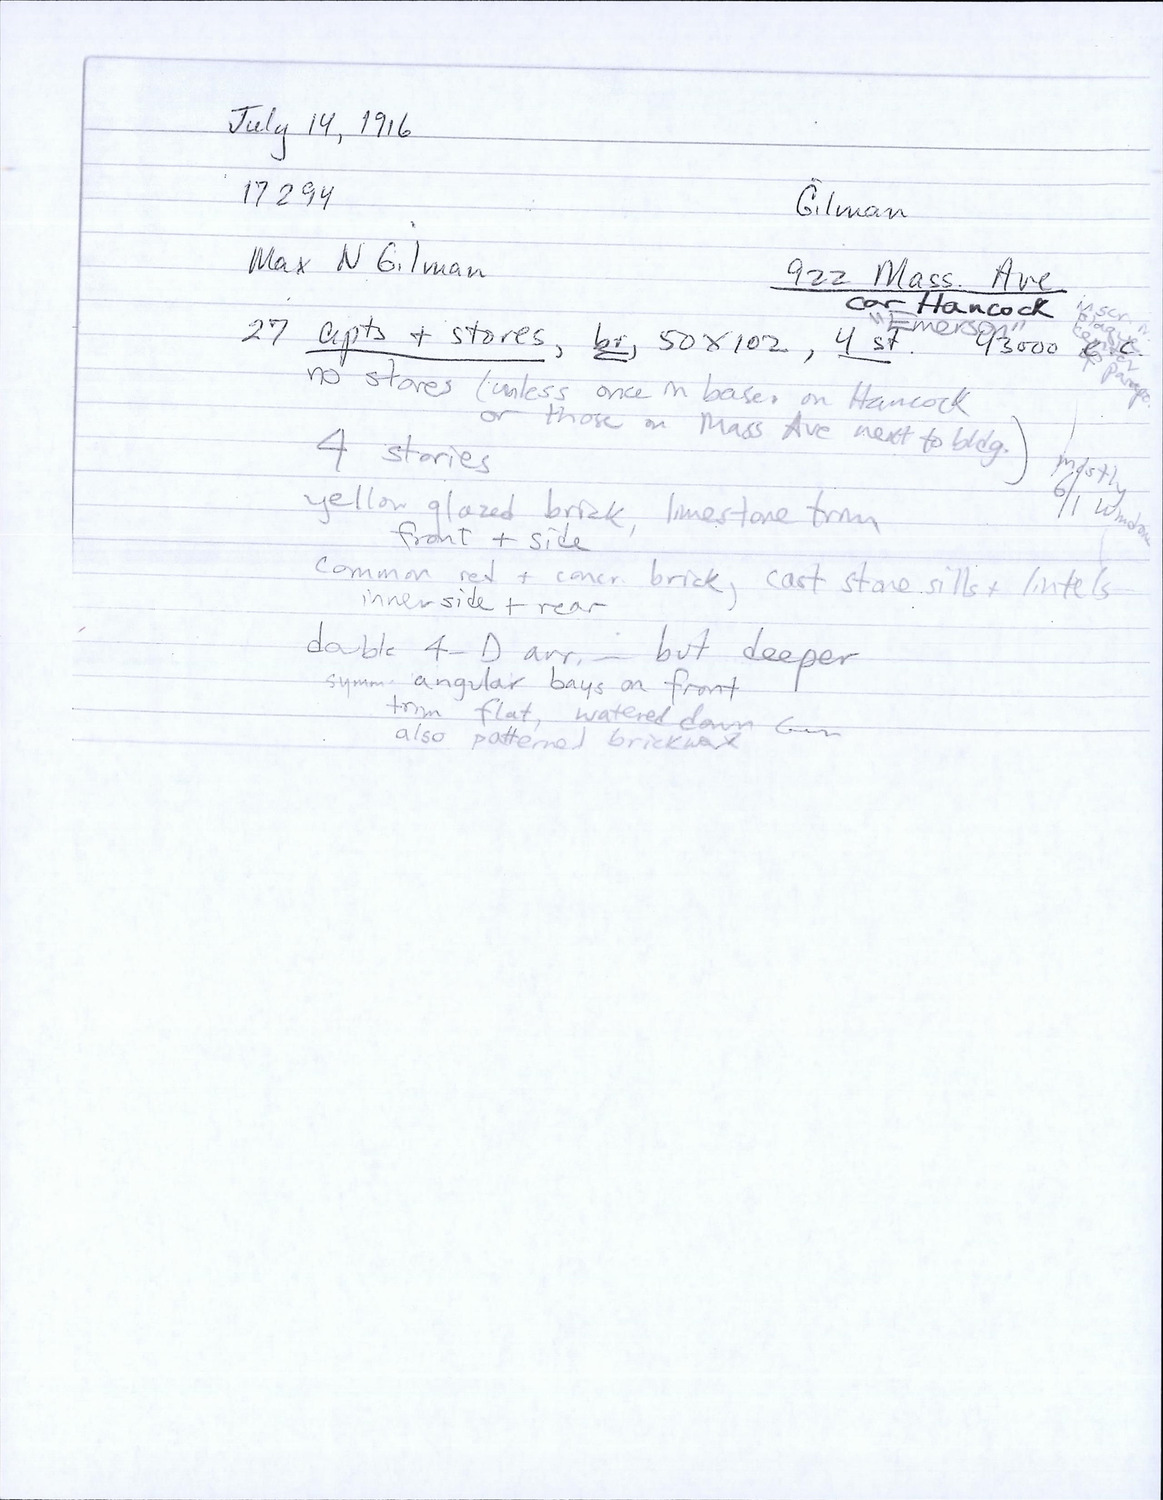 July 14, 1916
17294
Gilman
Max N Gilman
922 Mass. Ave
cor Hancock
"Emerson"
27 apts + stores, br, 50x102, 4 st. 93000 e.c.
inscr. in
plaque
center
parapet
no stores (unless once in base. on Hancock
or those on Mass Ave next to bldg.)
4 stories
mostly
6/1 window
yellow glazed brick, limestone trim
front + side
common red + concr. brick, cast stone sills + lintels
inner side + rear
double 4-D arr. — but deeper
symm. angular bays on front
trim flat, watered down
also patterned brickwork